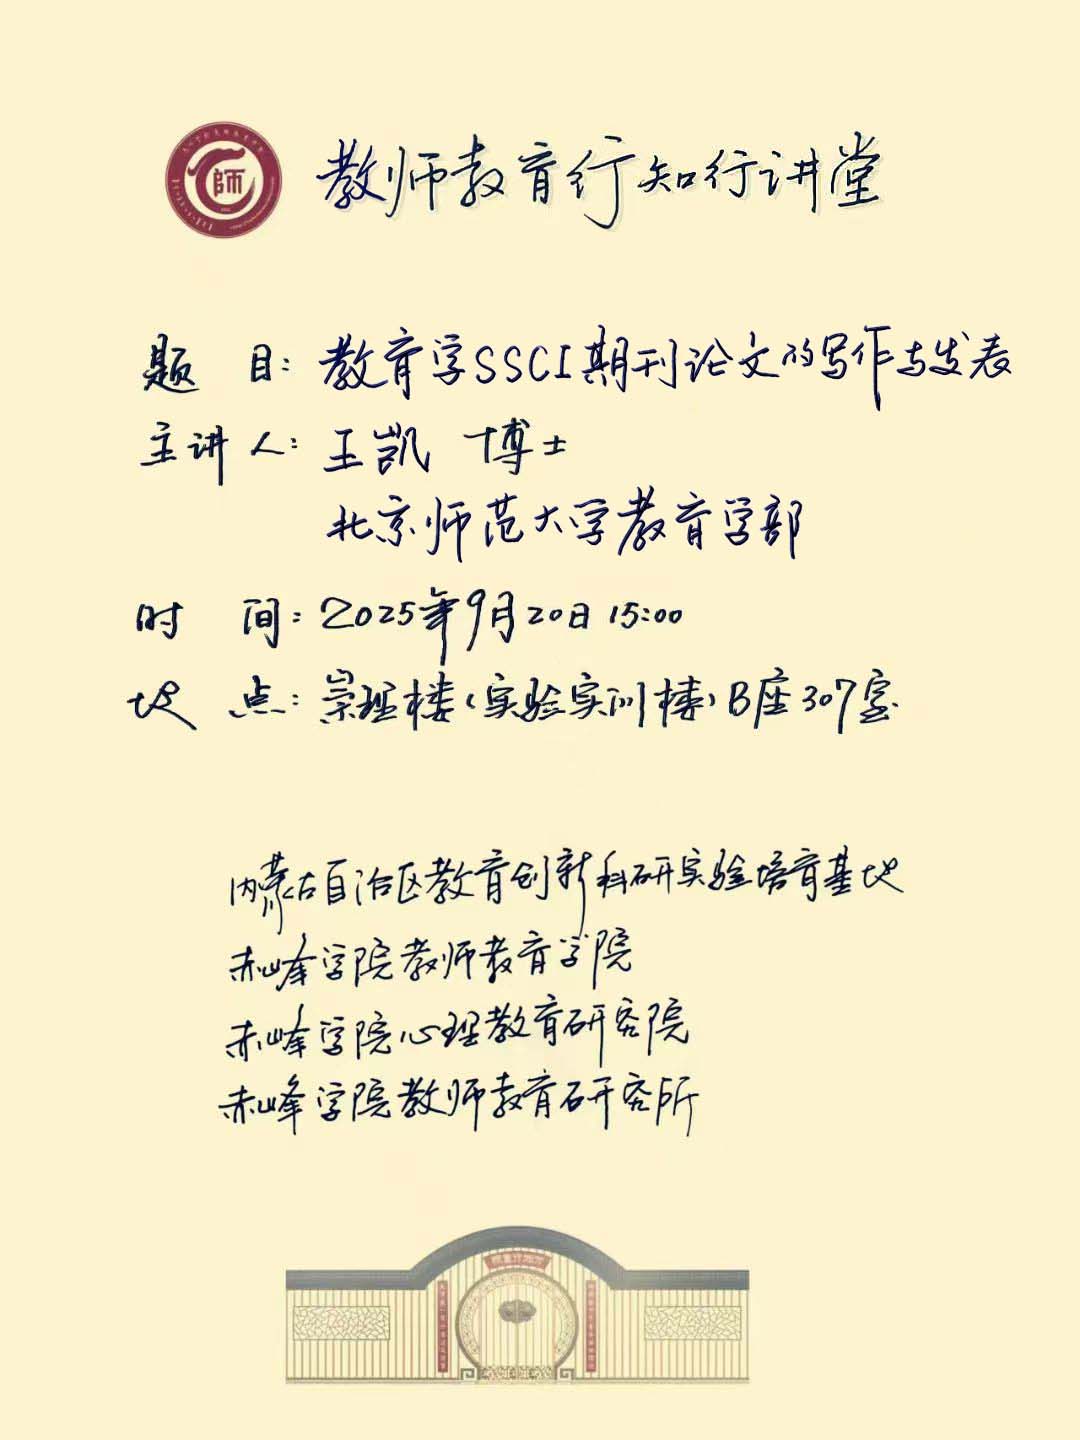 師
教师教育行知行讲堂
题 目: 教育学SSCI期刊论文的写作与发表
主讲人: 王凯 博士
北京师范大学教育学部
时 间: 2025年9月20日 15:00
地 点: 崇理楼(实验实训楼)B座307室
内蒙古自治区教育创新科研实验培育基地
赤峰学院教师教育学院
赤峰学院心理教育研究院
赤峰学院教师教育研究所